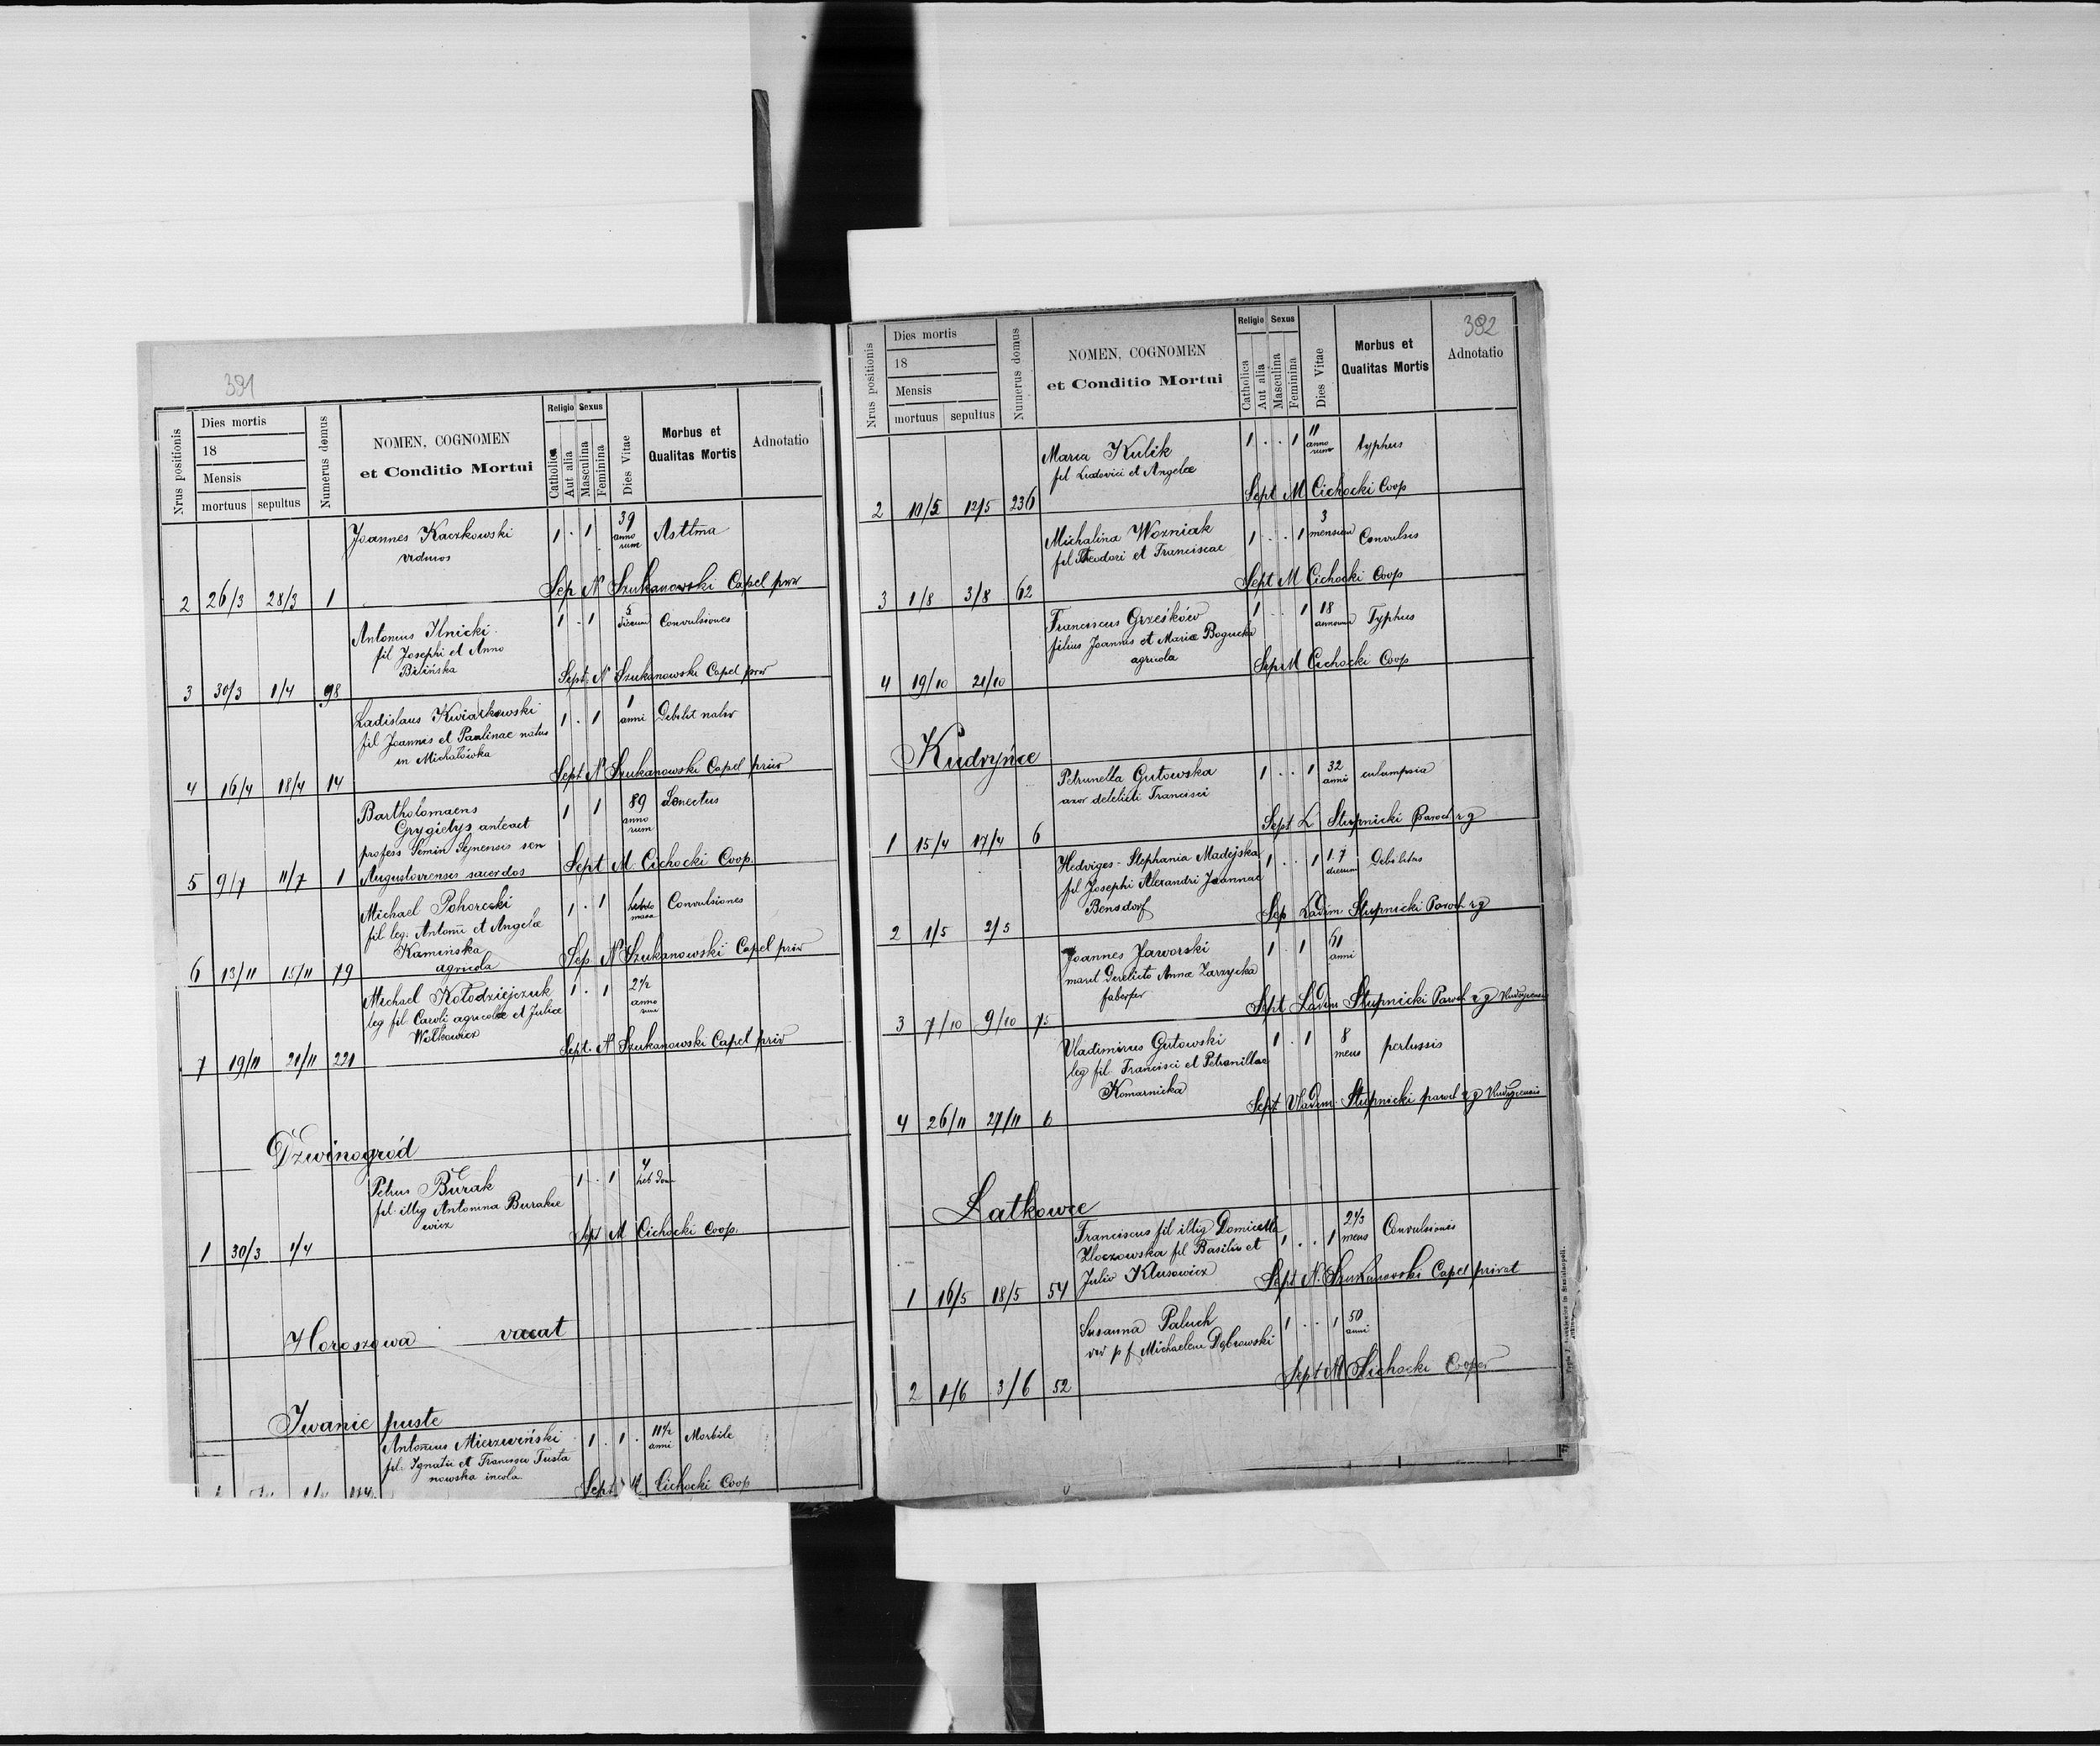 391
Nrus positionis
Dies mortis
18
Mensis
mortuus sepultus
Numerus domus
NOMEN, COGNOMEN
et Conditio Mortui
Religio Sexus
Catholica
Aut alia
Masculina
Feminina
Dies Vitae
Morbus et
Qualitas Mortis
Adnotatio
Joannes Kaczkowski 1 . 1 39 annorum Asttma
viduus
2 26/3 28/3 1 Sep N Szukanowski Capel priv
Antonius Ilnicki 1 . 1 5 dierum Convulsiones
fil Josephi et Anno
Bilińska
3 30/3 1/4 98 Sept N Szukanowski Capel priv
Ladislaus Kwiatkowski 1 . 1 1 anni Debilit
fil Joannis et Paulinae natus
in Michałówka
4 16/4 18/4 14 Sept N Szukanowski Capel priv
Bartholomaeus 1 1 89 annorum Senectus
Grygietys anteact
profess Semin Sejnensis sen
Augustoviensis sacerdos
5 9/7 11/7 1 Sept M. Cichocki Coop.
Michael Pohorecki 1 . 1 hebdomada Convulsiones
fil leg. Antonii et Angelae
Kamińska
agricola
6 13/11 15/11 79 Sep. N Szukanowski Capel priv
Michael Kołodziejczuk 1 . 1 2½ annorum
leg fil. Caroli agricolae et Juliae
7 19/11 21/11 221 Sept. N Szukanowski Capel priv
Dzwinogród
Petrus Burak 1 . 1 4 hebdom
fil illig Antonina Burakie
wicz
1 30/3 1/4 Sept M Cichocki Coop.
Horoszowa vacat
Iwanie puste
Antonius Mierzwiński 1 . 1 . 11½ anni Morbile
fil. Ignatii et Francisca Tusta
nowska incola
Sept M Cichocki Coop
392
Nrus positionis
Dies mortis
18
Mensis
mortuus sepultus
Numerus domus
NOMEN, COGNOMEN
et Conditio Mortui
Religio Sexus
Catholica
Aut alia
Masculina
Feminina
Dies Vitae
Morbus et
Qualitas Mortis
Adnotatio
Maria Kulik 1 . . 1 11 annorum typhus
fil Ludovici et Angelae
2 10/5 12/5 236 Sept M Cichocki Coop
Michalina Wozniak 1 . . 1 3 mensium Convulsis
fil Theodori et Franciscae
3 1/8 3/8 62 Sept M Cichocki Coop
Franciscus Grześków 1 . . 1 18 annorum Typhus
filius Joannis et Mariae Bogucka
agricola
4 19/10 21/10 Sep M Cichocki Coop
Kudryńce
Petrunella Gutowska 1 . . 1 32 anni eclampsia
uxor Francisci
1 15/4 17/4 6 Sept L Stupnicki Paroch r g
Hedviges-Stephania Madejska 1 . . 1 17 dierum Debilitas
fil Josephi Alexandri Joannae
Bensdorf
2 1/5 2/5 Sep Ladim Stupnicki Paroch r g
Joannes Jaworski 1 . 1 61 anni
marit Derelicto Annae Zarzycka
faberfer
3 7/10 9/10 75 Sept Ladim Stupnicki Paroch r g
Vladimirus Gutowski 1 . 1 8 mens pertussis
leg fil. Francisci et Petronillae
Komarnicka
4 26/11 27/11 6 Sept Vladim. Stupnicki paroch r g
Latkowce
Franciscus fil illig Domicella 1 . . 1 2⅓ mens Convulsionis
Złoczowska fil Basilii et
Julio Klusowicz
1 16/5 18/5 54 Sept N. Szukanowski Capel privat
Susanna Paluch 1 . . 1 50 anni
p f Michaelem Dąbrowski
2 1/6 3/6 52 Sept M Cichocki Cooper